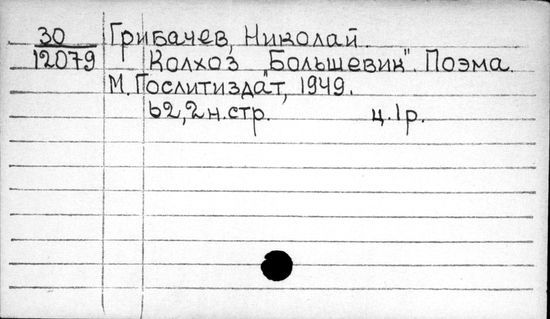 30 Грибачев, Николай.
12079 Колхоз "Большевик". Поэма.
М. Гослитиздат, 1949.
62, 2 н. стр. ц. 1 р.